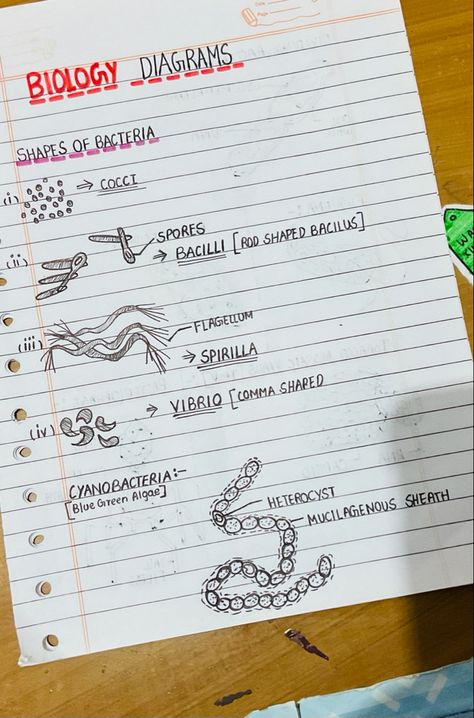 BIOLOGY DIAGRAMS
SHAPES OF BACTERIA
(i) → COCCI
SPORES
(ii) → BACILLI [ROD SHAPED BACILUS]
FLAGELLUM
(iii) → SPIRILLA
(iv) → VIBRIO [COMMA SHARED
CYANOBACTERIA:-
[Blue Green Algae]
HETEROCYST
MUCILAGENOUS SHEATH